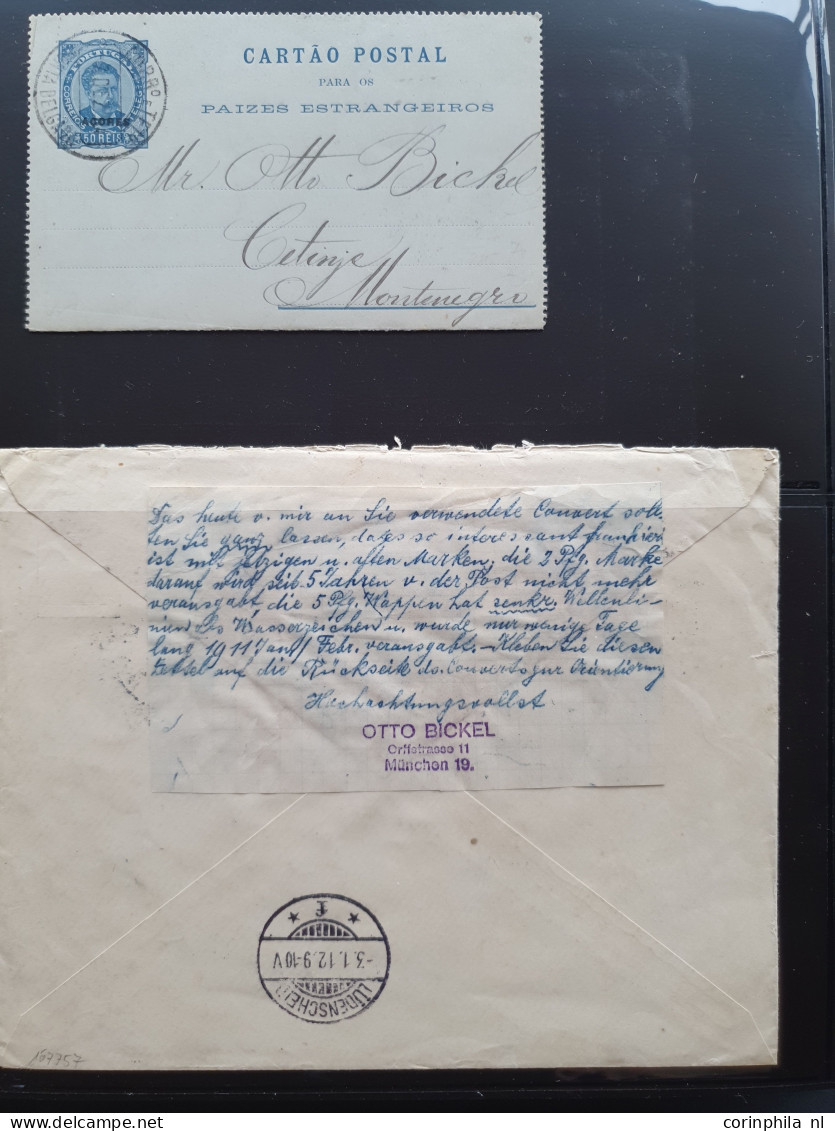 CARTÃO POSTAL
PARA OS
PAIZES ESTRANGEIROS
CORREIOS
AÇORES
50 REIS
Mr. Otto Bickel
Cetinje
Montenegro
Das heute v. mir an Sie verwendete Couvert soll-
ten Sie ganz lassen, da es so interessant frankiert
ist mit jetzigen u. alten Marken, die 2 Pfg. Marke
darauf wird seit 5 Jahren v. der Post nicht mehr
verausgabt, die 5 Pfg. Wappen hat senkr. Wellenli-
nien als Wasserzeichen u. wurde nur wenige Tage
lang 1911 Febr. verausgabt. - Kleben Sie diesen
Zettel auf die Rückseite ds. Couverts zur Orientierung
Hochachtungsvollst
OTTO BICKEL
Orffstrasse 11
München 19.
* f *
-3.1.12.9-10 V
LÜDENSCHEID
167757
www.corinphila.nl